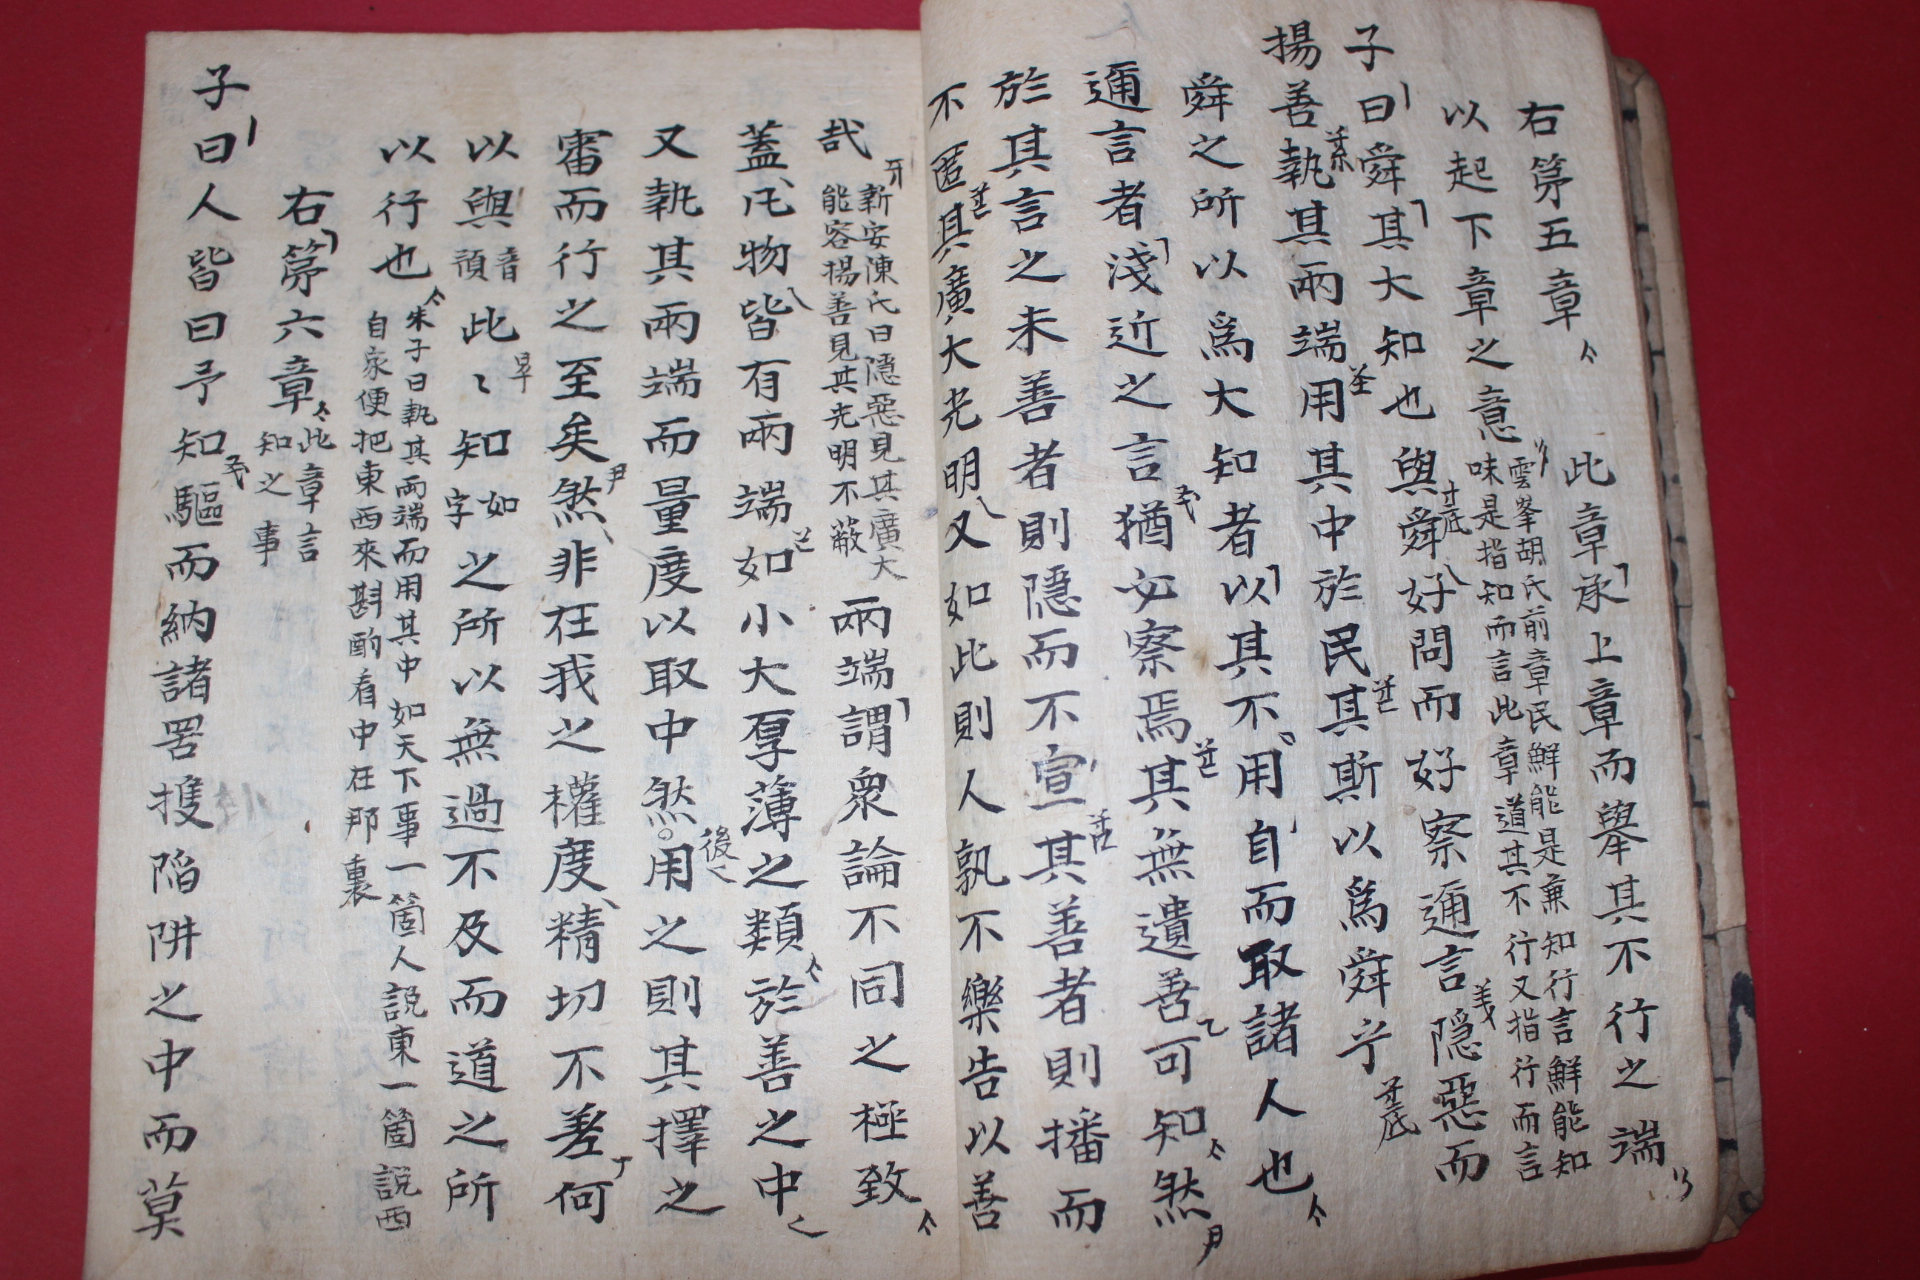 右第五章 此章承上章而舉其不行之端
以起下章之意 雲峯胡氏前章民鮮能是兼知行言鮮能知
味是指知而言此章道其不行又指行而言
子曰舜其大知也與舜好問而好察邇言隱惡而
揚善執其兩端用其中於民其斯以爲舜乎
舜之所以爲大知者以其不用自而取諸人也
邇言者淺近之言猶必察焉其無遺善可知然
於其言之未善者則隱而不宣其善者則播而
不匿其廣大光明又如此則人孰不樂告以善
哉 新安陳氏曰隱惡見其廣大
能容揚善見其光明不蔽 兩端謂衆論不同之極致
蓋凡物皆有兩端如小大厚薄之類於善之中
又執其兩端而量度以取中然後用之則其擇之
審而行之至矣然非在我之權度精切不差何
以與 音預 此〻知 如字 之所以無過不及而道之所
以行也 朱子曰執其兩端而用其中如天下事一箇人說東一箇說西
自家便把東西來斟酌看中在那裏
右第六章 此章言
知之事
子曰人皆曰予知驅而納諸罟擭陷阱之中而莫